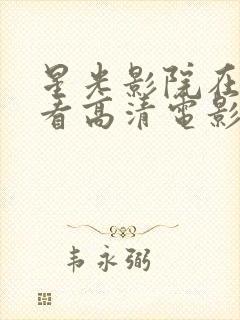 星光影院在
看高清电影
韦永弼